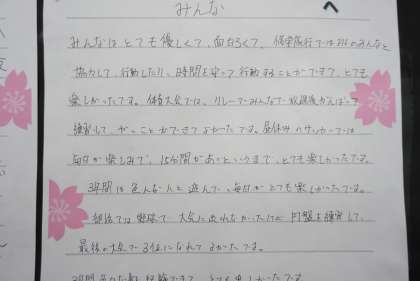 みんなへ
みんなはとても優しくて、面白くて、修学旅行では班のみんなと
協力して、行動したり、時間を守って行動することができて、とても
楽しかったです。体育大会では、リレーでみんなで放課後がんばって
練習して、やっことができてよかったです。昼休みのサッカーでは
毎日が楽しみで、15分間があっというまで、とても楽しかったです。
3年間は色んな人と遊んで、毎日がとても楽しかったです。
部活では野球で大会に出れなかったけど円盤を練習して、
最後の大会で3位になれてよかったです。
3年間
楽しかったです